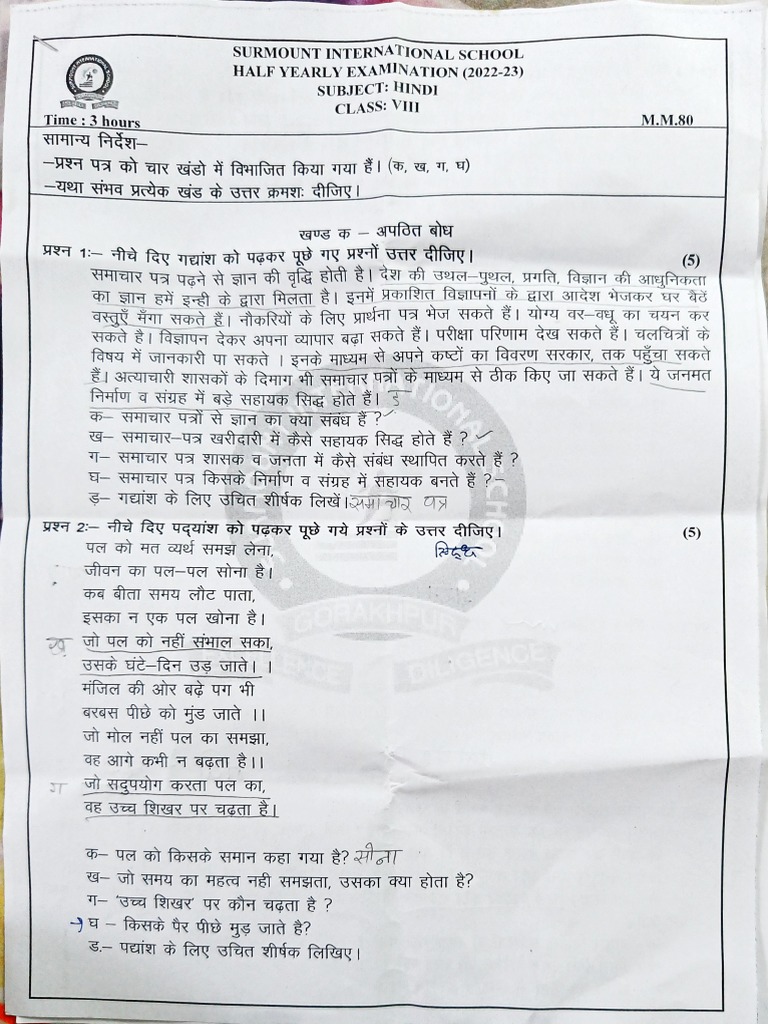 SURMOUNT INTERNATIONAL SCHOOL
HALF YEARLY EXAMINATION (2022-23)
SUBJECT: HINDI
CLASS: VIII
Time : 3 hours M.M.80
सामान्य निर्देश–
–प्रश्न पत्र को चार खंडो में विभाजित किया गया हैं। (क, ख, ग, घ)
–यथा संभव प्रत्येक खंड के उत्तर क्रमशः दीजिए।
खण्ड क – अपठित बोध
प्रश्न 1:– नीचे दिए गद्यांश को पढ़कर पूछे गए प्रश्नों उत्तर दीजिए। (5)
समाचार पत्र पढ़ने से ज्ञान की वृद्धि होती है। देश की उथल-पुथल, प्रगति, विज्ञान की आधुनिकता
का ज्ञान हमें इन्ही के द्वारा मिलता है। इनमें प्रकाशित विज्ञापनों के द्वारा आदेश भेजकर घर बैठें
वस्तुएँ मँगा सकते हैं। नौकरियों के लिए प्रार्थना पत्र भेज सकते हैं। योग्य वर–वधू का चयन कर
सकते है। विज्ञापन देकर अपना व्यापार बढ़ा सकते हैं। परीक्षा परिणाम देख सकते हैं। चलचित्रों के
विषय में जानकारी पा सकते । इनके माध्यम से अपने कष्टों का विवरण सरकार, तक पहुँचा सकते
हैं। अत्याचारी शासकों के दिमाग भी समाचार पत्रों के माध्यम से ठीक किए जा सकते हैं। ये जनमत
निर्माण व संग्रह में बड़े सहायक सिद्ध होते हैं। ड
क– समाचार पत्रों से ज्ञान का क्या संबंध हैं ?
ख– समाचार–पत्र खरीदारी में कैसे सहायक सिद्ध होते हैं ?
ग– समाचार पत्र शासक व जनता में कैसे संबंध स्थापित करते हैं ?
घ– समाचार पत्र किसके निर्माण व संग्रह में सहायक बनते हैं ?
ड़– गद्यांश के लिए उचित शीर्षक लिखें। समाचार पत्र
प्रश्न 2:– नीचे दिए पद्यांश को पढ़कर पूछे गये प्रश्नों के उत्तर दीजिए। (5)
पल को मत व्यर्थ समझ लेना,
जीवन का पल–पल सोना है।
कब बीता समय लौट पाता,
इसका न एक पल खोना है।
ख जो पल को नहीं संभाल सका,
उसके घंटे–दिन उड़ जाते। ।
मंजिल की ओर बढ़े पग भी
बरबस पीछे को मुंड जाते ।।
जो मोल नहीं पल का समझा,
वह आगे कभी न बढ़ता है।।
ग जो सदुपयोग करता पल का,
वह उच्च शिखर पर चढ़ता है।
क– पल को किसके समान कहा गया है? सोना
ख– जो समय का महत्व नही समझता, उसका क्या होता है?
ग– 'उच्च शिखर' पर कौन चढ़ता है ?
घ – किसके पैर पीछे मुड़ जाते है?
ड.– पद्यांश के लिए उचित शीर्षक लिखिए।
GORAKHPUR
DILIGENCE